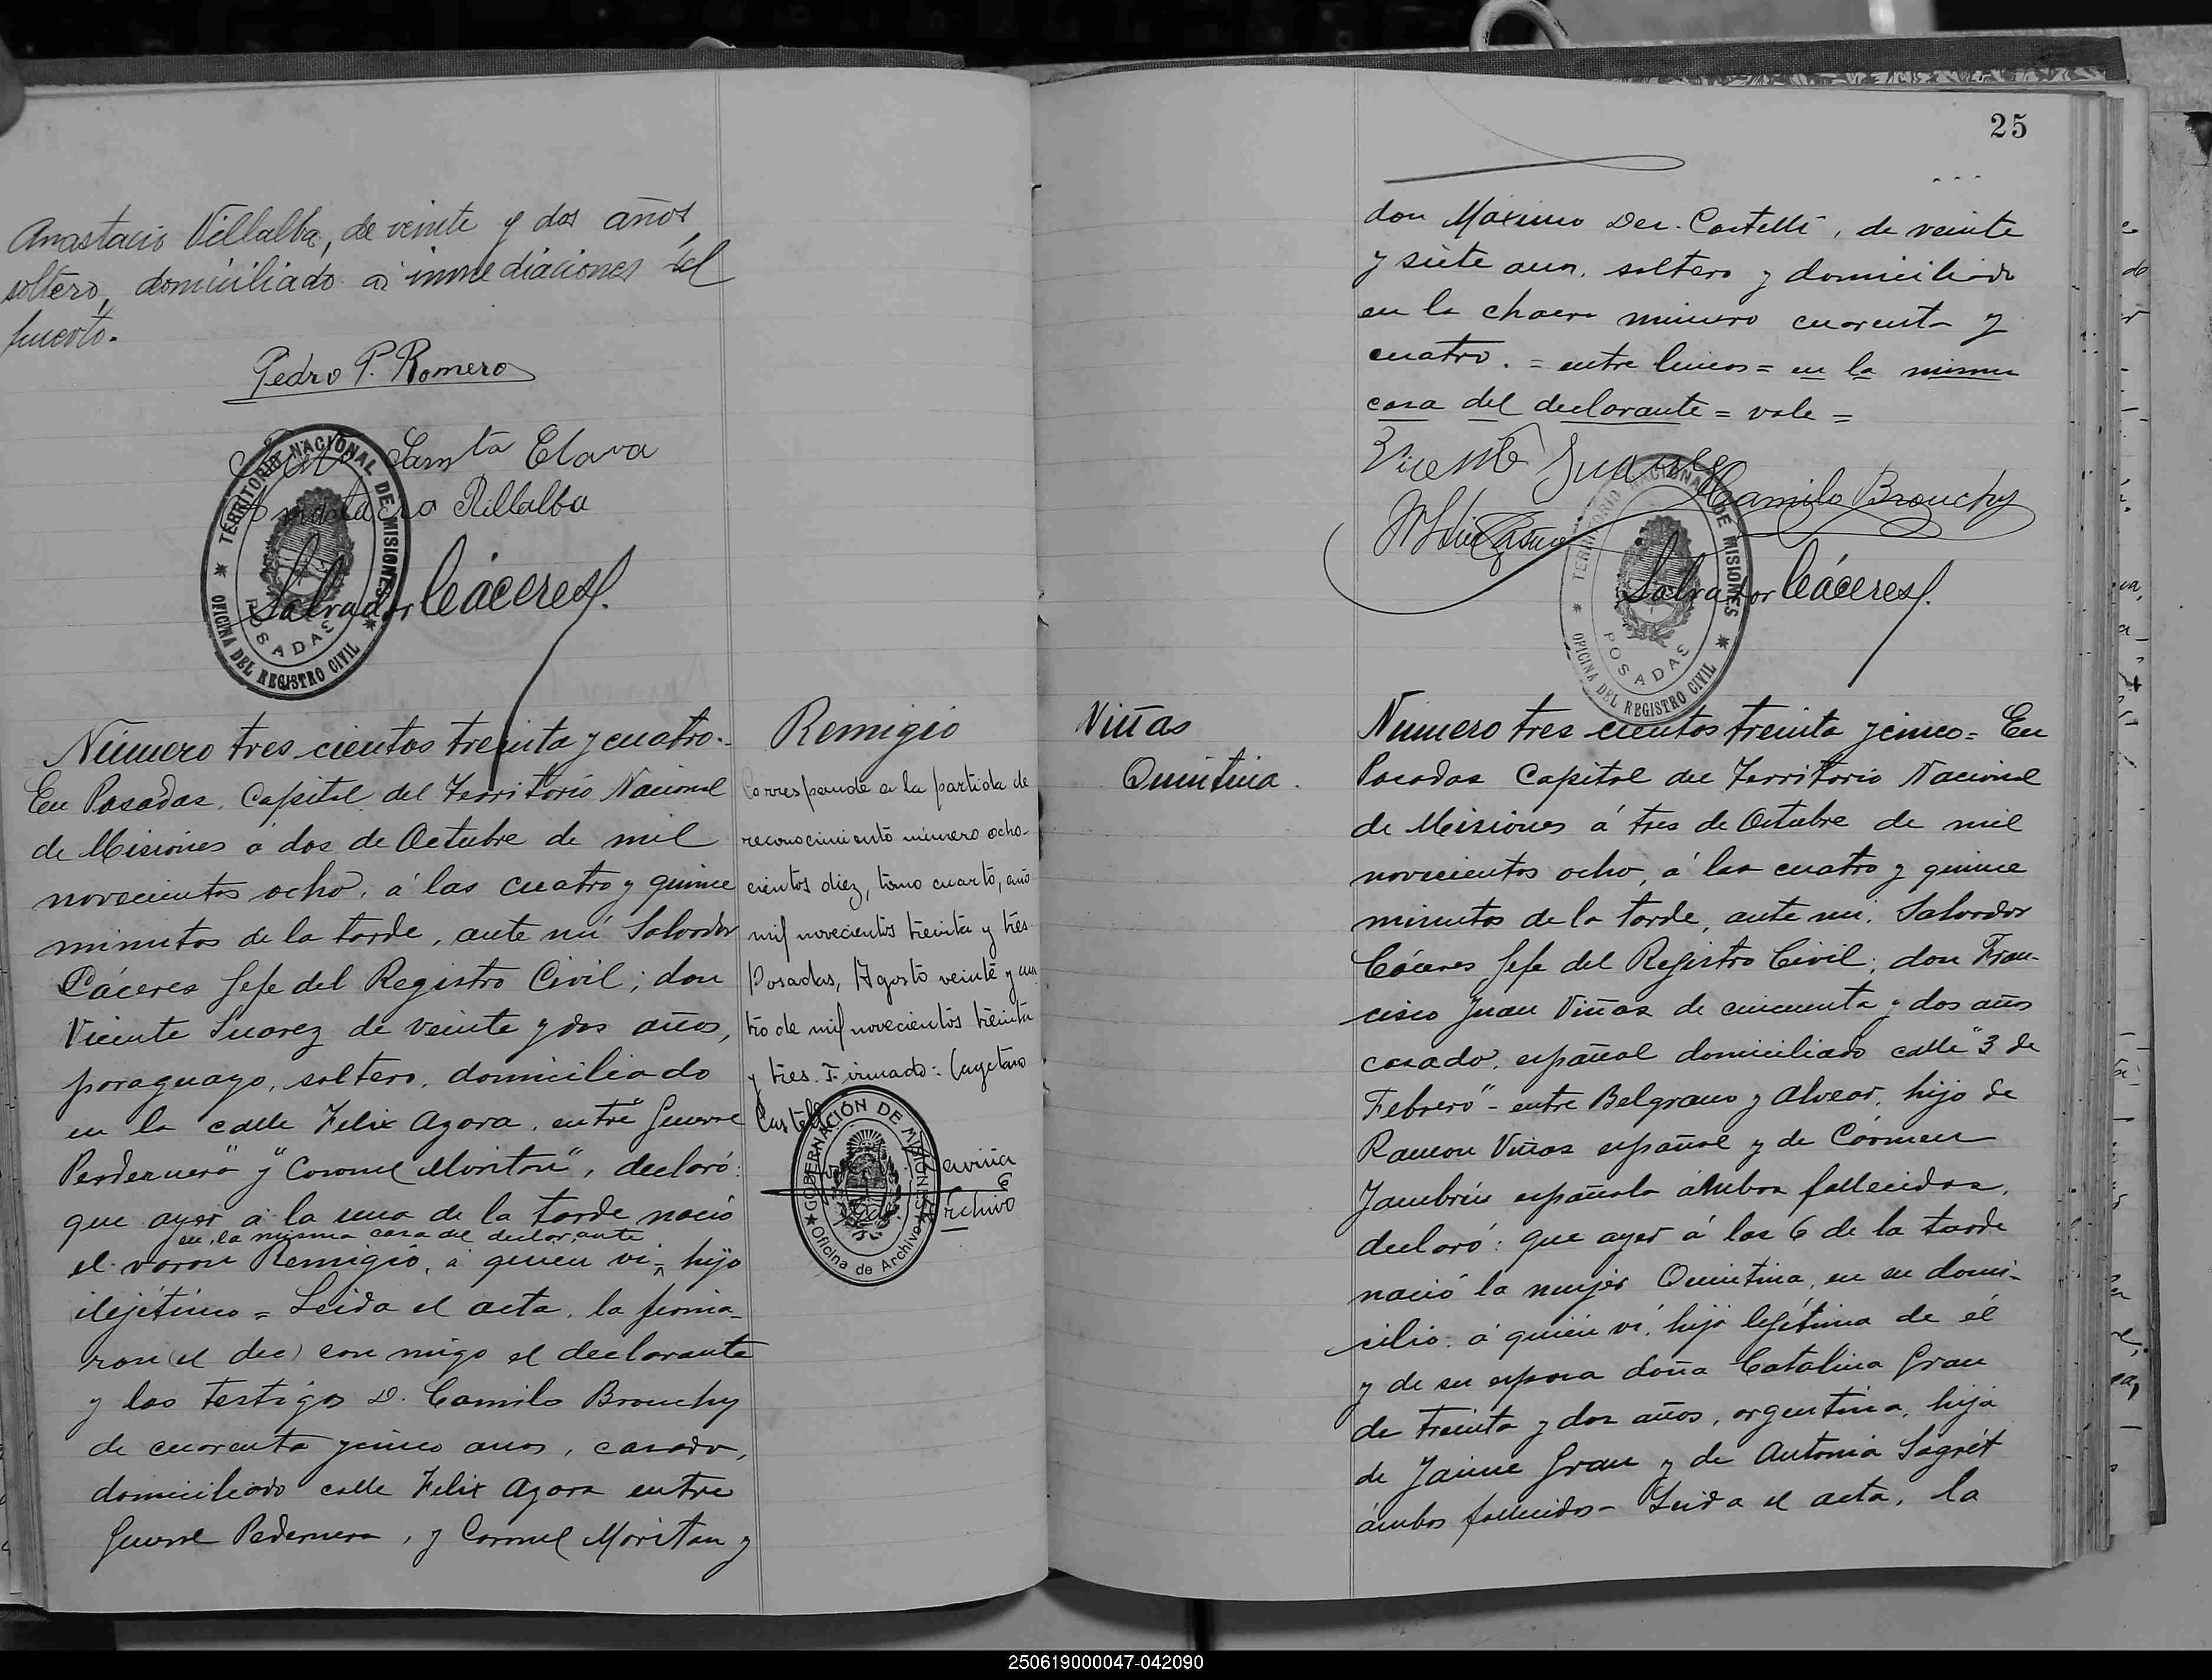 Anastacio Villalba, de veinte y dos años,
soltero, domiciliado á inmediaciones del
puerto.
Pedro P. Romero
Santa Clara
Anastacio Villalba
TERRITORIO NACIONAL DE MISIONES
POSADAS
OFICINA DEL REGISTRO CIVIL
Salvador Cáceres
Número tres cientos treinta y cuatro.
En Posadas, Capital del Territorio Nacional
de Misiones á dos de Octubre de mil
novecientos ocho, á las cuatro y quince
minutos de la tarde, ante mí Salvador
Cáceres Jefe del Registro Civil; don
Vicente Suarez de veinte y dos años,
paraguayo, soltero, domiciliado
en la calle Felix Azara, entre "General
Pedernera" y "Coronel Moritan", declaró:
que ayer á la una de la tarde nació
en la misma casa del declarante
el varon Remigio, á quien vi = hijo
ilejitimo = Leida el acta, la firma-
ron (el dec) con migo el declarante
y los testigos D. Camilo Brouchy
de cuarenta y cinco anos, casado,
domiciliado calle Felix Azara entre
General Pedernera, y Coronel Moritan y
Remigio
Corresponde a la partida de
reconocimiento número ocho-
cientos diez, tomo cuarto, año
mil novecientos treinta y tres
Posadas, Agosto veinte y cua
tro de mil novecientos treinta
y tres. Firmado: Cayetano
Castel
GOBERNACIÓN DE MISIONES
Oficina de Archivo
Archivo
25
don Máximo Der. Castelli, de veinte
y siete anos, soltero y domiciliado
en la chacra número cuarenta y
cuatro. = entre lineas = en la misma
casa del declarante = vale =
Vicente Suarez
Camilo Brouchy
TERRITORIO NACIONAL DE MISIONES
POSADAS
OFICINA DEL REGISTRO CIVIL
Salvador Cáceres
Viñas
Quintina.
Número tres cientos treinta y cinco = En
Posadas Capital del Territorio Nacional
de Misiones á tres de Octubre de mil
novecientos ocho, á las cuatro y quince
minutos de la tarde, ante mi, Salvador
Cáceres Jefe del Registro Civil; don Fran-
cisco Juan Viñas de cincuenta y dos años
casado, español domiciliado calle "3 de
Febrero" - entre Belgrano y Alvear, hijo de
Ramon Viñas español y de Cármen
Jambrin española ámbos fallecidos,
declaró: que ayer á las 6 de la tarde
nació la mujer Quintina, en su domi-
cilio: á quien vi, hija legítima de él
y de su esposa doña Catalina Grau
de treinta y dos años, argentina, hija
de Jaime Grau y de Antonia Sagrét
ámbos fallecidos - Leida el acta, la
250619000047-042090